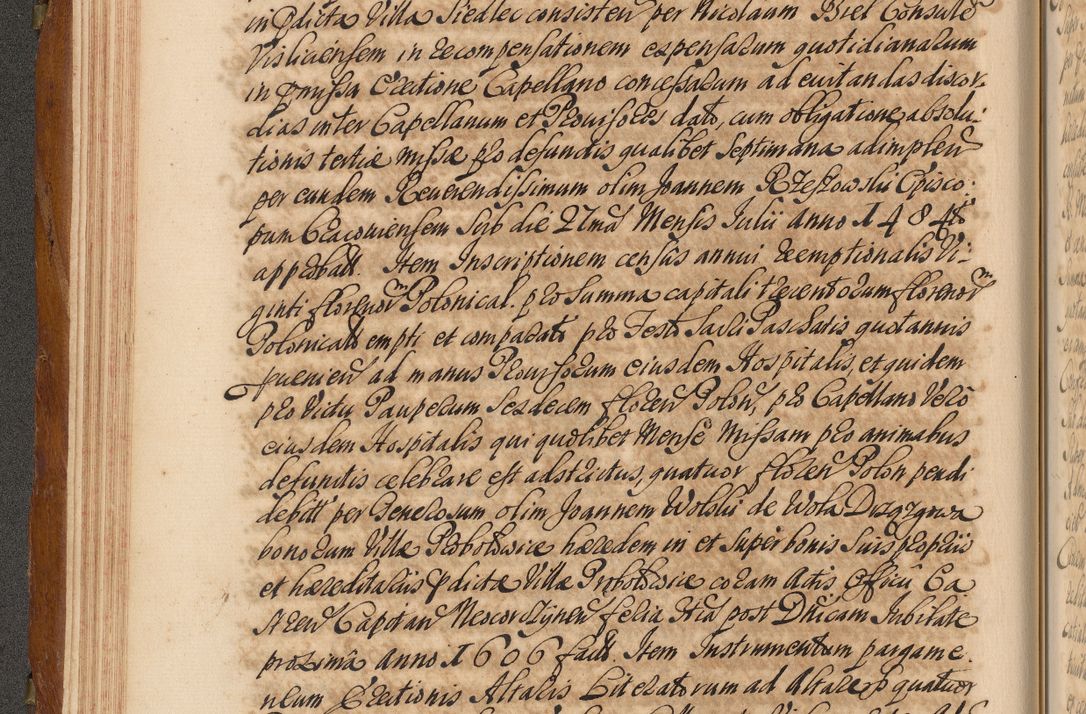 in Pdicta Villa Siedlec consisten per Nicolaum Biel Consule
Visliciensem in recompensationem expensarum quotidianarum
in Pmissa Erectione Capellano concessarum ad evitandas discor-
dias inter Capellanum et Provisores dato, cum obligatione absolu-
tionis tertiæ Missæ pro defunctis qualibet Septimana adimplen
per eundem Reverendissimum olim Joannem Rzeszowski Episco-
pum Cracoviensem Sub die 27ma Mensis Julii Anno 1484to
approbatt. Item Inscriptionem census annui reemptionalis Vi-
ginti florenor Polonical. pro Summa capitali trecentorum florenor
Polonical empti et comparato pro Festo Sacri Paschatis quotannis
pvenien ad manus Provisorum eiusdem Hospitalis, et quidem
pro Victu Pauperum Sexdecem floren Polon, pro Capellano Vero
eiusdem Hospitalis qui quolibet Mense Missam pro animabus
defunctis celebrare est adstrictus, quatuor floren Polon pendi
debitt per Generosum olim Joannem Wolski de Wola
bonorum Villæ Probotowice hæredem in et Super bonis Suis propriis
et hæreditariis Pdictæ Villæ Probotowice coram Actis Officii Ca
stren Capitan Neocorczynen feria 3tia post Dnicam Jubilate
proxima Anno 1606 factt. Item Instrumentum pargame-
neum Erectionis Altaris Literatorum ad Altare p quatuor